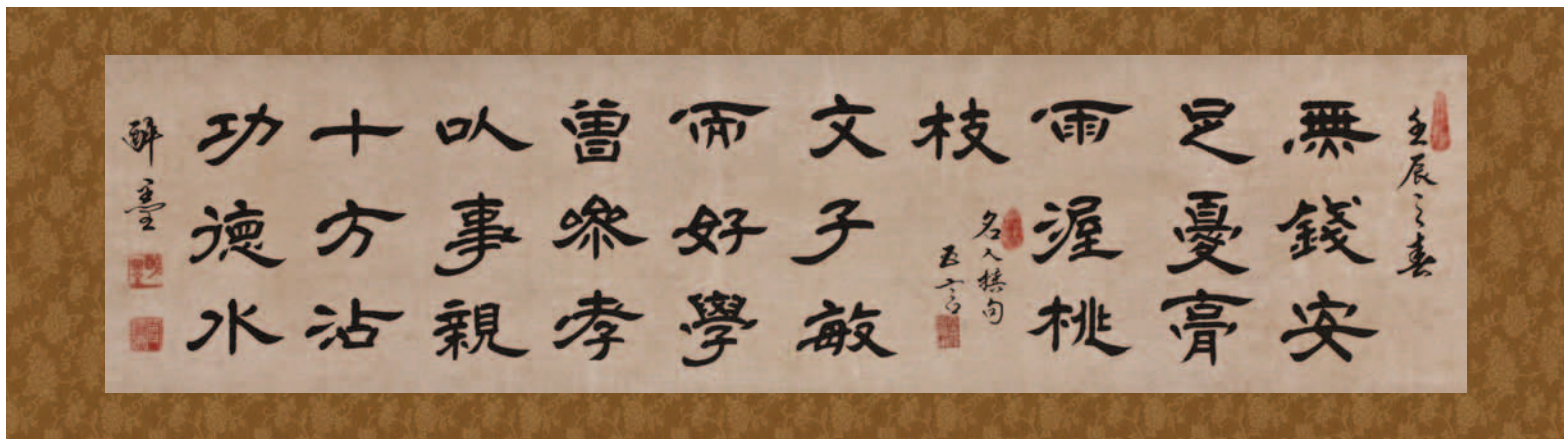 壬辰之春
無錢安
足憂膏
雨渥桃
枝
名人楹句
五言
文子敏
而好學
曾參孝
以事親
十方沾
功德水
醉墨